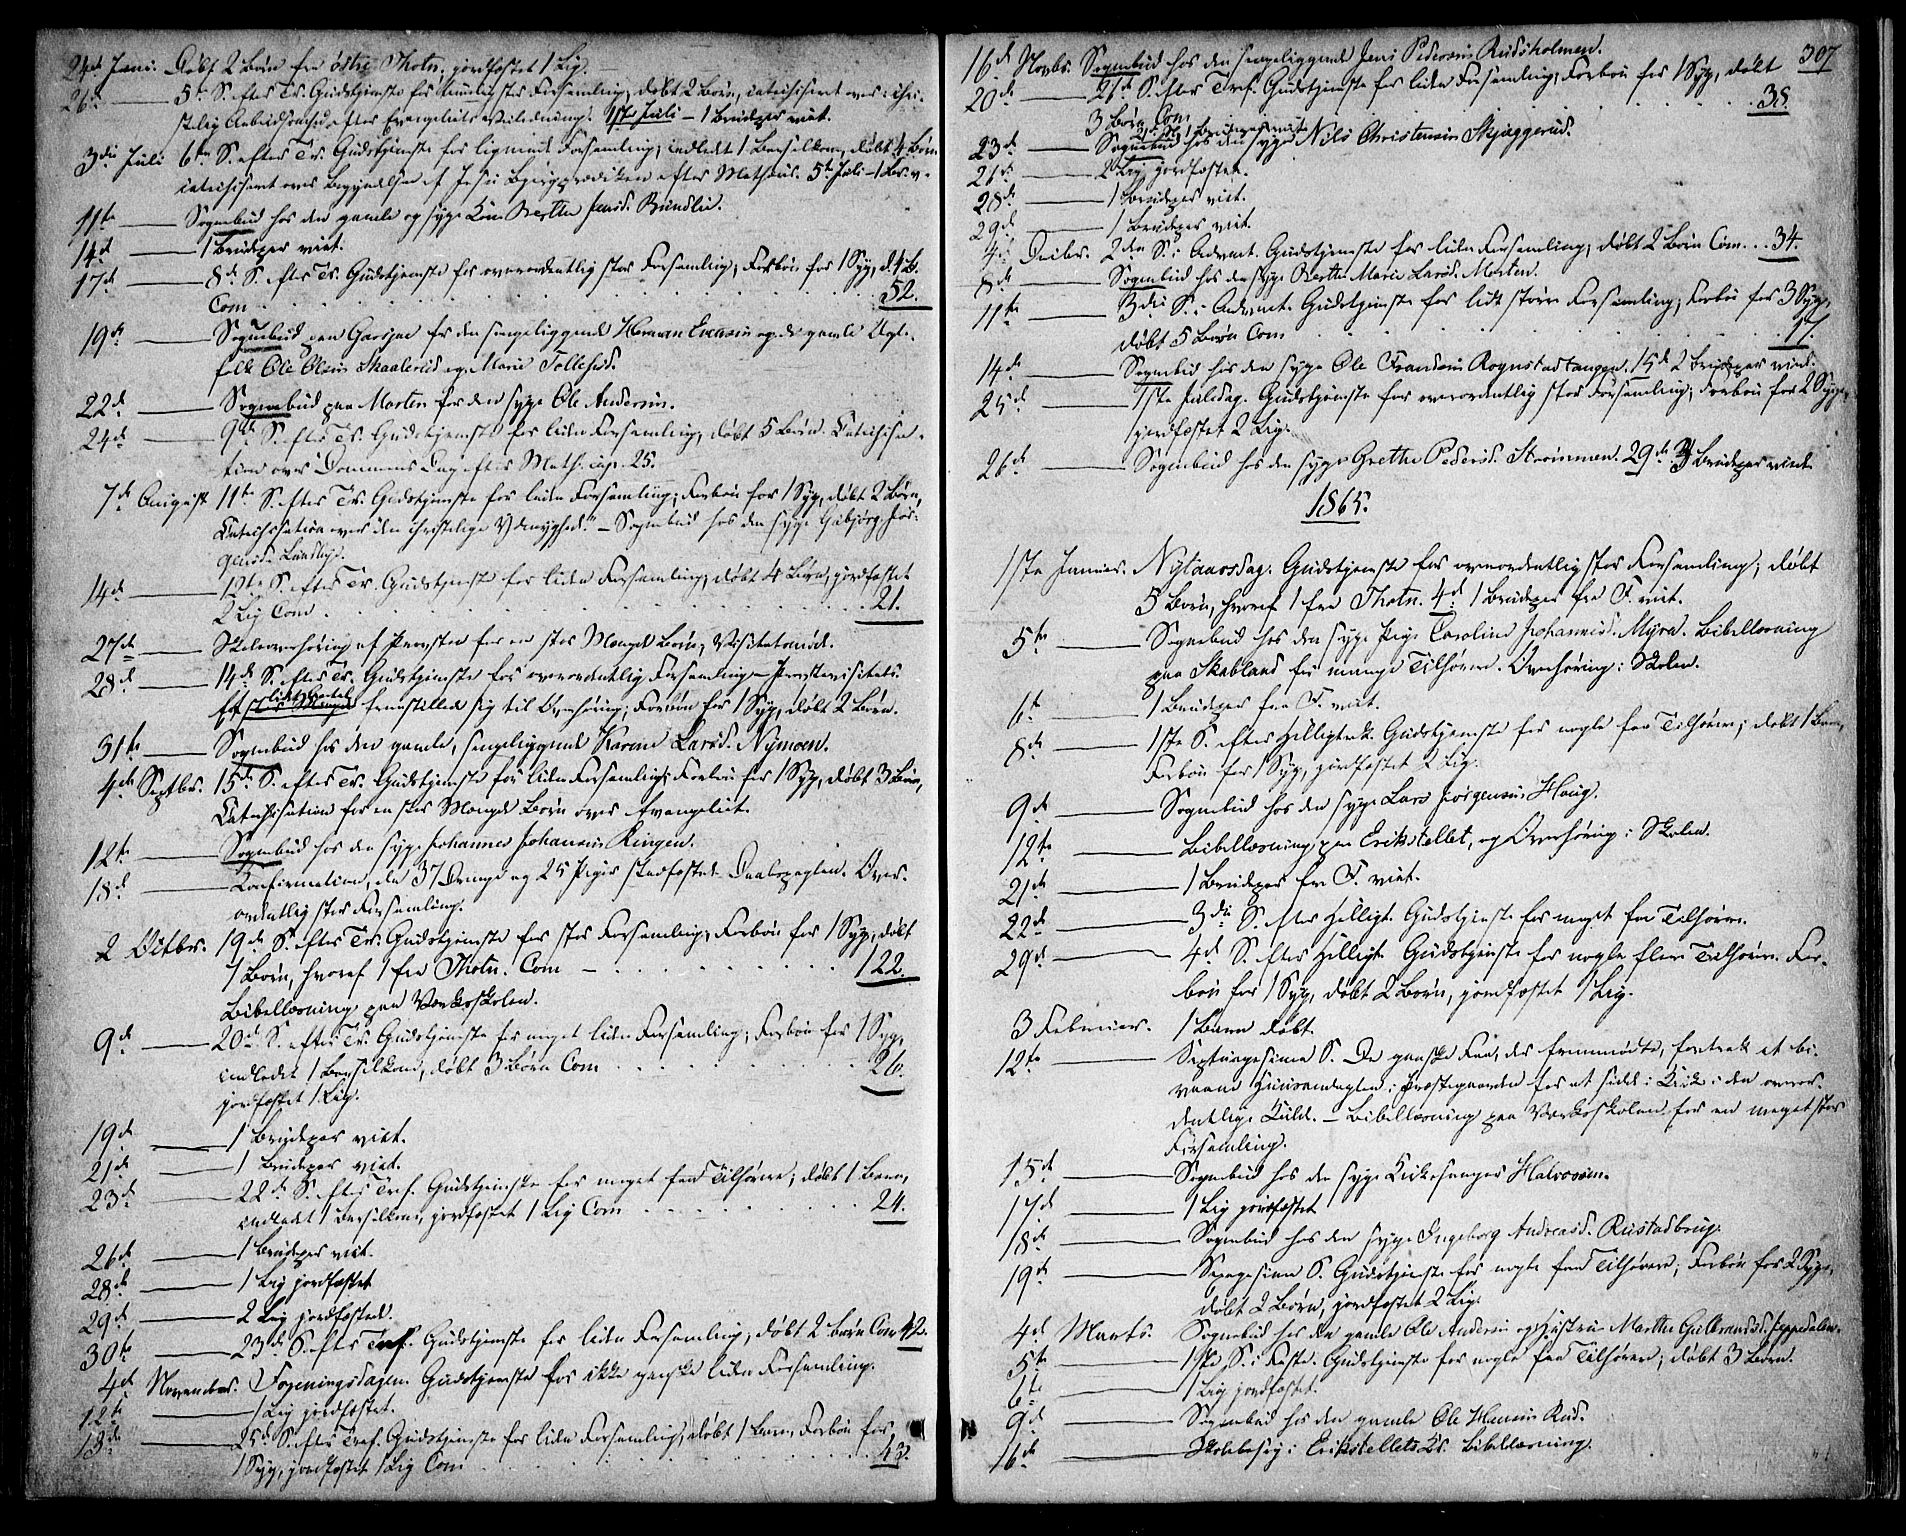 24de Juni. Døbt 2 Børn fra østre Thotn. jordfæstet 1 Lig.
26de — 5te S. efter Tr. Gudstjeneste for Forsamling, døbt 2 Børn, catechiseret over: chri-
stelig efter Evangeliets Veiledning. 1ste Juli – 1 Brudepar viet.
3die Juli 6te S. efter Tr. Gudstjeneste for lignende Forsamling; indledt 1 Barselkone, døbt 4 Børn
catechiseret over Begyndelsen af Jesu Bjergprædiken efter Mathæus. 5te Juli – 1 Br. v.
11te — Sognebud hos den gamle og syge Kone Berthe Jensd. Brundlie.
14de — 1 Brudepar viet.
17de — 8de S. efter Tr. Gudstjeneste for overordentlig stor Forsamling, Forbøn for 1 Syg, d. 4 B.
Com . . . 52.
19de — Sognebud paa for den sengeliggende Herman og de gamle Ægte-
folk Ole Olsen Skaalerud og Marie Tollefsd.
22de — Sognebud paa Morten for den syge Ole Andersen.
24de — 9de S. efter Tr. Gudstjeneste for liden Forsamling, døbt 5 Børn. Catechisa-
tion over Dommens Dag efter Math. cap. 25.
7de August 11te S. efter Tr. Gudstjeneste for liden Forsamling; Forbøn for 1 Syg, døbt 2 Børn,
Catechisation over den christelige Ydmyghed. – Sognebud hos den syge Gubjørg Jør-
gensd. Lundbye.
14de — 12te S. efter Tr. Gudstjeneste for liden Forsamling, døbt 4 Børn, jordfæstet
2 Lig Com . . . 21.
27de — Skoleoverhøring af Provsten for en stor Mængde Børn; Visitatsmøde.
28de — 14de S. efter Tr. Gudstjeneste for overordentlig Forsamling – Provstevisitats.
Et lidet Antal fremstillede sig til Overhøring; Forbøn for 1 Syg, døbt 2 Børn.
31te — Sognebud hos den gamle, sengeliggende Karine Larsd. Nymoen.
4de Septbr. 15de S. efter Tr. Gudstjeneste for liden Forsamling; Forbøn for 1 Syg, døbt 3 Børn,
Catechisation for en stor Mængde Børn over Evangeliet.
12te — Sognebud hos den syge Johannes Johansen Ringen.
18de — Confirmation, da 37 Drenge og 25 Piger stadfæstet Daabspagten. Over-
ordentlig stor Forsamling.
2 Octbr. 19de S. efter Tr. Gudstjeneste for stor Forsamling, Forbøn for 1 Syg, døbt
7 Børn, hvoraf 1 fra Thotn. Com – . . . 122.
Bibellæsning paa Værkoskolen.
9de — 20de S. efter Tr. Gudstjeneste for meget liden Forsamling; Forbøn for 1 Syg,
indledet 1 Barselkone, døbt 3 Børn Com . . . 26.
jordfæstet 1 Lig.
19de — 1 Brudepar viet.
21de — 1 Brudepar viet.
23de — 22de S. efter Tref. Gudstjeneste for meget faa Tilhørere; døbt 1 Barn,
indledet 1 Barselkone, jordfæstet 1 Lig Com . . . 24.
26de — 1 Brudepar viet.
28de — 1 Lig jordfæstet
29de — 2 Lig jordfæstede.
30te — 23de S. efter Tref. Gudstjeneste for liden Forsamling, døbt 2 Børn Com 42.
4de November. Foreningsdagen. Gudstjeneste for ikke ganske liden Forsamling.
12te — 1 Lig jordfæstet.
13de — 25de S. efter Tref. Gudstjeneste for liden Forsamling, døbt 1 Barn, Forbøn for
1 Syg, jordfæstet 1 Lig Com . . . 43.
307
16de Novbr. Sognebud hos den sengeliggende Jens Pedersen Rudsholmen.
20de — 26de S. efter Tref. Gudstjeneste for liden Forsamling, Forbøn for 1 Syg, døbt
3 Børn Com . . . 38.
21de 1 Brudepar viet
23de — Sognebud hos den syge Nils Christensen Skjæggerud.
21de — 2 Lig jordfæstet.
28de — 1 Brudepar viet.
29de — 1 Brudepar viet.
4de Decbr. 2den S. i Advent. Gudstjeneste for liden Forsamling; døbt 2 Børn Com . . . 34.
8de — Sognebud hos den syge Berthe Marie Larsd. Morten.
11te — 3die S. i Advent. Gudstjeneste for lidt større Forsamling; Forbøn for 3 Syge,
døbt 5 Børn Com . . . 17.
14de — Sognebud hos den syge Ole Frandsen Rognstadtangen. 15de 2 Brudepar viede.
25de — 1ste Juledag. Gudstjeneste for overordentlig stor Forsamling; Forbøn for 2 Syge,
jordfæstet 2 Lig.
26de — Sognebud hos den syge Grethe Pedersd. Strømmen. 29de 3 Brudepar viet
1865.
1ste Januar. Nytaarsdag. Gudstjeneste for overordentlig stor Forsamling; døbt
5 Børn, hvoraf 1 fra Thotn. 4de 1 Brudepar fra F. viet.
5te — Sognebud hos den syge Pige Caroline Johannesd. Myra. Bibellæsning
paa Skabland for mange Tilhørere. Overhøring i Skolen.
6te — 1 Brudepar fra F. viet.
8de — 1ste S. efter Helligtrek. Gudstjeneste for nogle faa Tilhørere; døbt 1 Barn,
Forbøn for 1 Syg, jordfæstet 2 Lig.
9de — Sognebud hos den syge Lars Jørgensen Haug.
12te — Bibellæsning paa Erikstellet, og Overhøring i Skolen.
21de — 1 Brudepar fra F. viet.
22de — 3die S. efter Helligt. Gudstjeneste for meget faa Tilhørere.
29de — 4de S. efter Helligt. Gudstjeneste for nogle flere Tilhørere. For-
bøn for 1 Syg, døbt 2 Børn, jordfæstet 1 Lig.
3 Februar. 1 Barn døbt.
12te — Septuagesima S. De ganske Faa, der fremmødte, foretrak at bi-
vaane Huusandagten i Præstegaarden for at sidde i Kirke i den overor-
dentlige Kulde. – Bibellæsning paa Værkoskolen for en meget stor
Forsamling.
15de — Sognebud hos den syge Kirkesanger Halvorsen.
17de — 1 Lig jordfæstet
18de — Sognebud hos den syge Ingeborg Andreasd. Rustadbrug.
19de — Sexagesima S. Gudstjeneste for nogle faa Tilhørere; Forbøn for 2 Syge,
døbt 2 Børn, jordfæstet 2 Lig.
4de Marts. Sognebud hos den gamle Ole Andersen og Hustru Marthe Gulbrandsd. Seppedalen.
5te — 1ste S. i Faste. Gudstjeneste for nogle faa Tilhørere; døbt 3 Børn.
6te — 1 Lig jordfæstet.
9de — Sognebud hos den gamle Ole Hansen Rud.
16de — Skolebesøg i Erikstellets Kr. Bibellæsning.